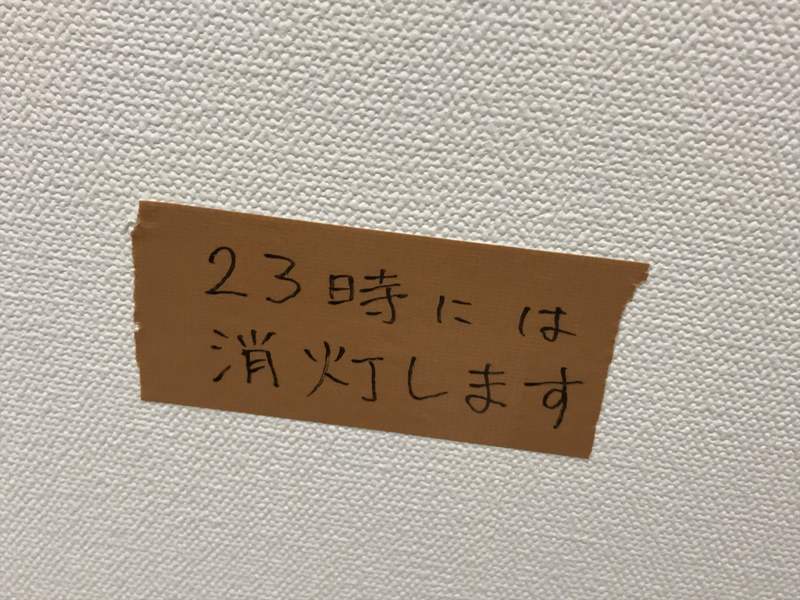 23時には
消灯します